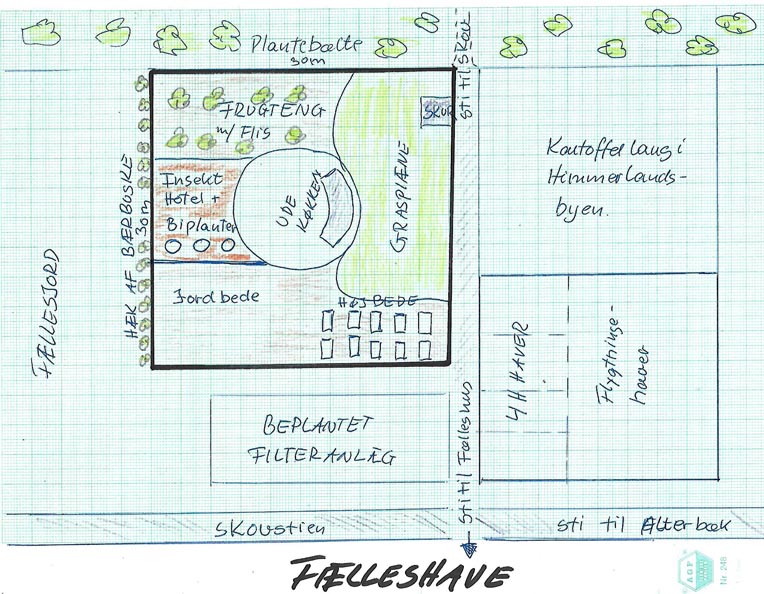 Plantebælte
30m
sti til skov
FRUGTENG
m/ Flis
SKUR
HÆK AF BÆRBUSKE
30m
Insekt
Hotel +
Biplanter
UDE
KØKKEN
GRASPLÆNE
Kartoffellaug i
Himmerlands-
byen.
FÆLLESJORD
Jordbede
HØJBEDE
4H HAVER
Flygtninge-
haver
BEPLANTET
FILTERANLÆG
sti til Fælleshus
SKOVSTIEN
sti til Alterbæk
FÆLLESHAVE
AGF
Nr. 248